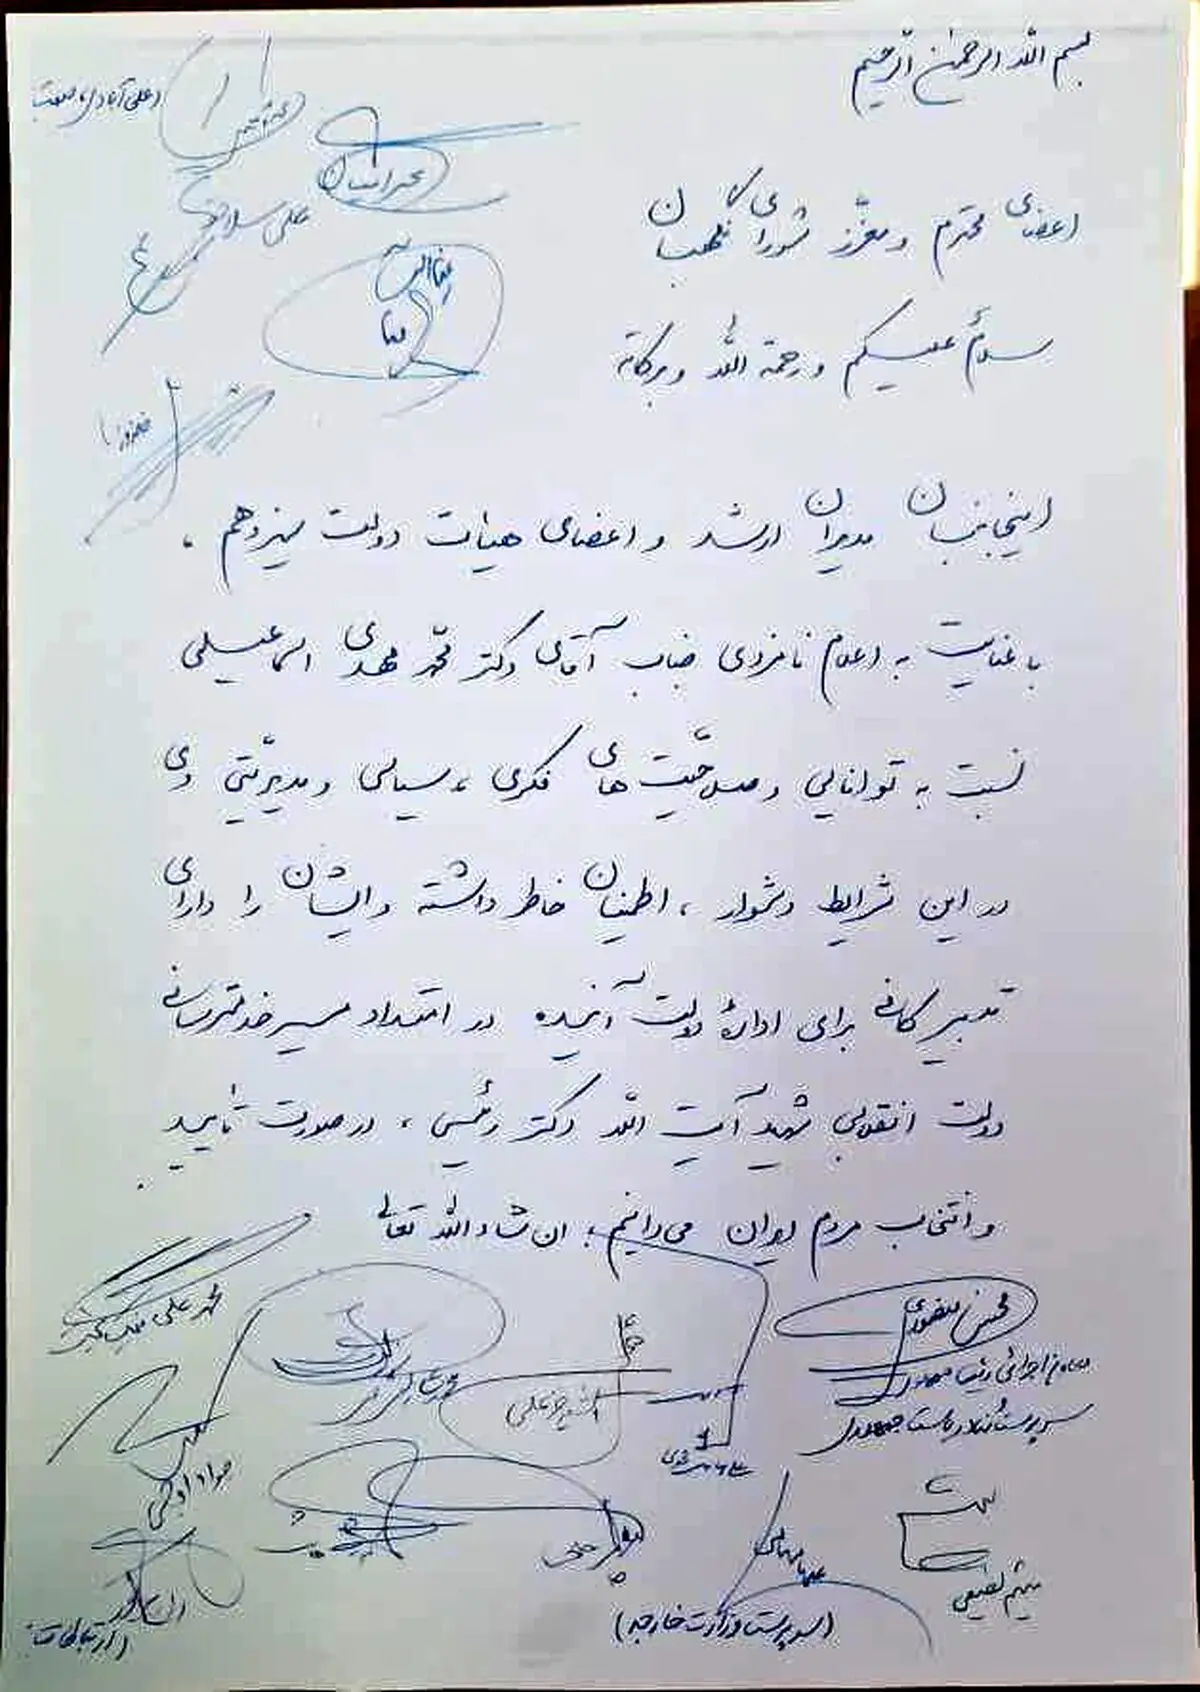 بسم الله الرحمن الرحیم
اعضای محترم و معزّز شورای نگهبان
سلامٌ علیکم و رحمة الله و برکاته
اینجانبان مدیران ارشد و اعضای هیات دولت سیزدهم ،
با عنایت به اعلام نامزدی جناب آقای دکتر محمّد مهدی اسماعیلی
نسبت به توانایی و صلاحیّت های فکری ، سیاسی و مدیریّتی وی
در این شرایط دشوار ، اطمینان خاطر داشته و ایشان را دارای
تدبیر کافی برای ادارهٔ دولت آینده در امتداد مسیر خدمترسانی
دولت انقلابی شهید آیت الله دکتر رئیسی ، در صورت تأیید
و انتخاب مردم ایران می‌دانیم ؛ ان شاء الله تعالی
علی سلاجقه
عمرانیان
محسن منصوری
معاون اجرائی رئیس جمهور
سرپرست نهاد ریاست جمهوری
محمد علی
جواد اوجی
میثم لطیفی
(سرپرست وزارت خارجه)
(ارتباطات)